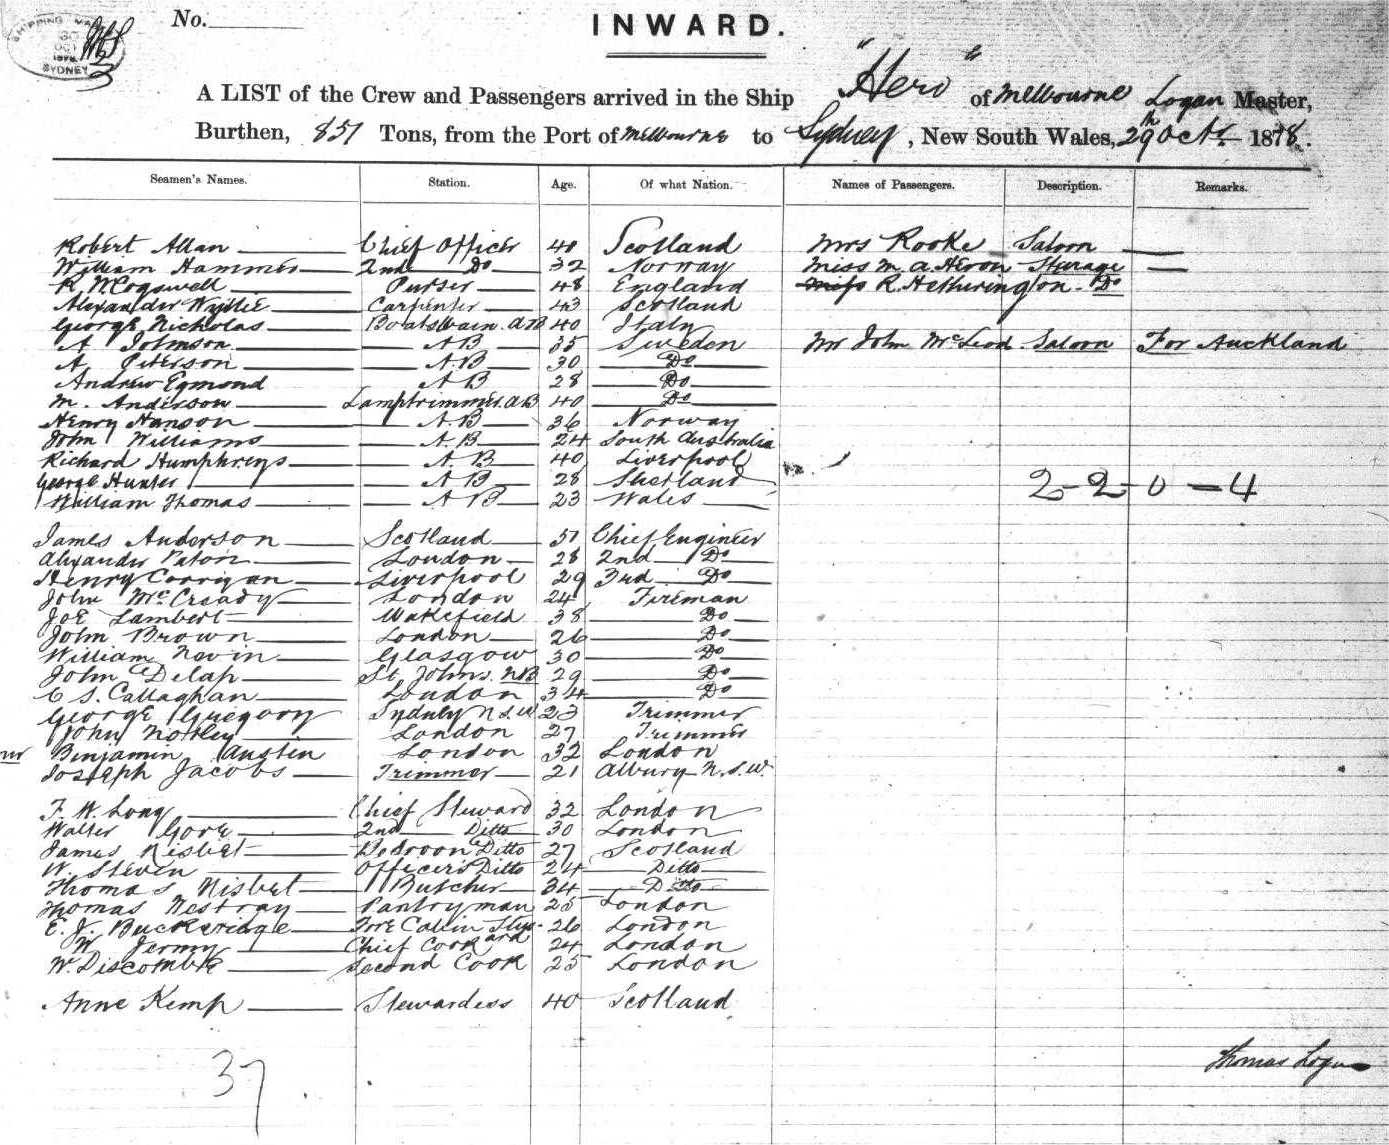 SHIPPING MA
30
OCT
1878
SYDNEY
No.
INWARD.
A LIST of the Crew and Passengers arrived in the Ship "Hero" of Melbourne Logan Master,
Burthen, 851 Tons, from the Port of Melbourne to Sydney, New South Wales, 29th Oct 1878.
Seamen's Names. Station. Age. Of what Nation. Names of Passengers. Description. Remarks.
Robert Allan Chief Officer 40 Scotland Mrs Rooke Saloon
William Hammer 2nd Do 32 Norway Miss M. A Heron Sturage
R. McCogswell Purser 48 England Miss R. Hetherington Do
Alexander Wyllie Carpenter 43 Scotland
George Nicholas Boatswain. AB 40 Italy
A Johnson AB 35 Sweden Mr John McLeod Saloon For Auckland
A Peterson A.B 30 Do
Andrew Egmond A B 28 Do
M. Anderson Lamptrimmer. AB 40 Do
Henry Hanson A.B 36 Norway
John Williams A.B 24 South Australia
Richard Humphreys A B 40 Liverpool
George Hunter A B 28 Shetland 2-2-0-4
William Thomas A B 23 Wales
James Anderson Scotland 51 Chief Engineer
Alexander Paton London 28 2nd Do
Henry Corrigan Liverpool 29 3rd Do
John McCready London 24 Fireman
Joe Lambert Wakefield 38 Do
John Brown London 26 Do
William Nevin Glasgow 30 Do
John Delap St Johns. NB 29 Do
C S. Callaghan London 34 Do
George Gregory Sydney N S W 23 Trimmer
John Notley London 27 Trimmer
Benjamin Austin London 32 London
Joseph Jacobs Trimmer 21 Albury N.S.W.
F. W. Long Chief Steward 32 London
Walter Gore 2nd Ditto 30 London
James Nisbet Bedroon Ditto 27 Scotland
W. Steven Officers Ditto 24 Ditto
Thomas Nisbet Butcher 34 Ditto
Thomas Westray Pantryman 25 London
E. J. Buckeridge Fore Cabin Steward 26 London
W Jermy Chief Cook 24 London
W. Discombe Second Cook 25 London
Anne Kemp Stewardess 40 Scotland
37
Thomas Logan